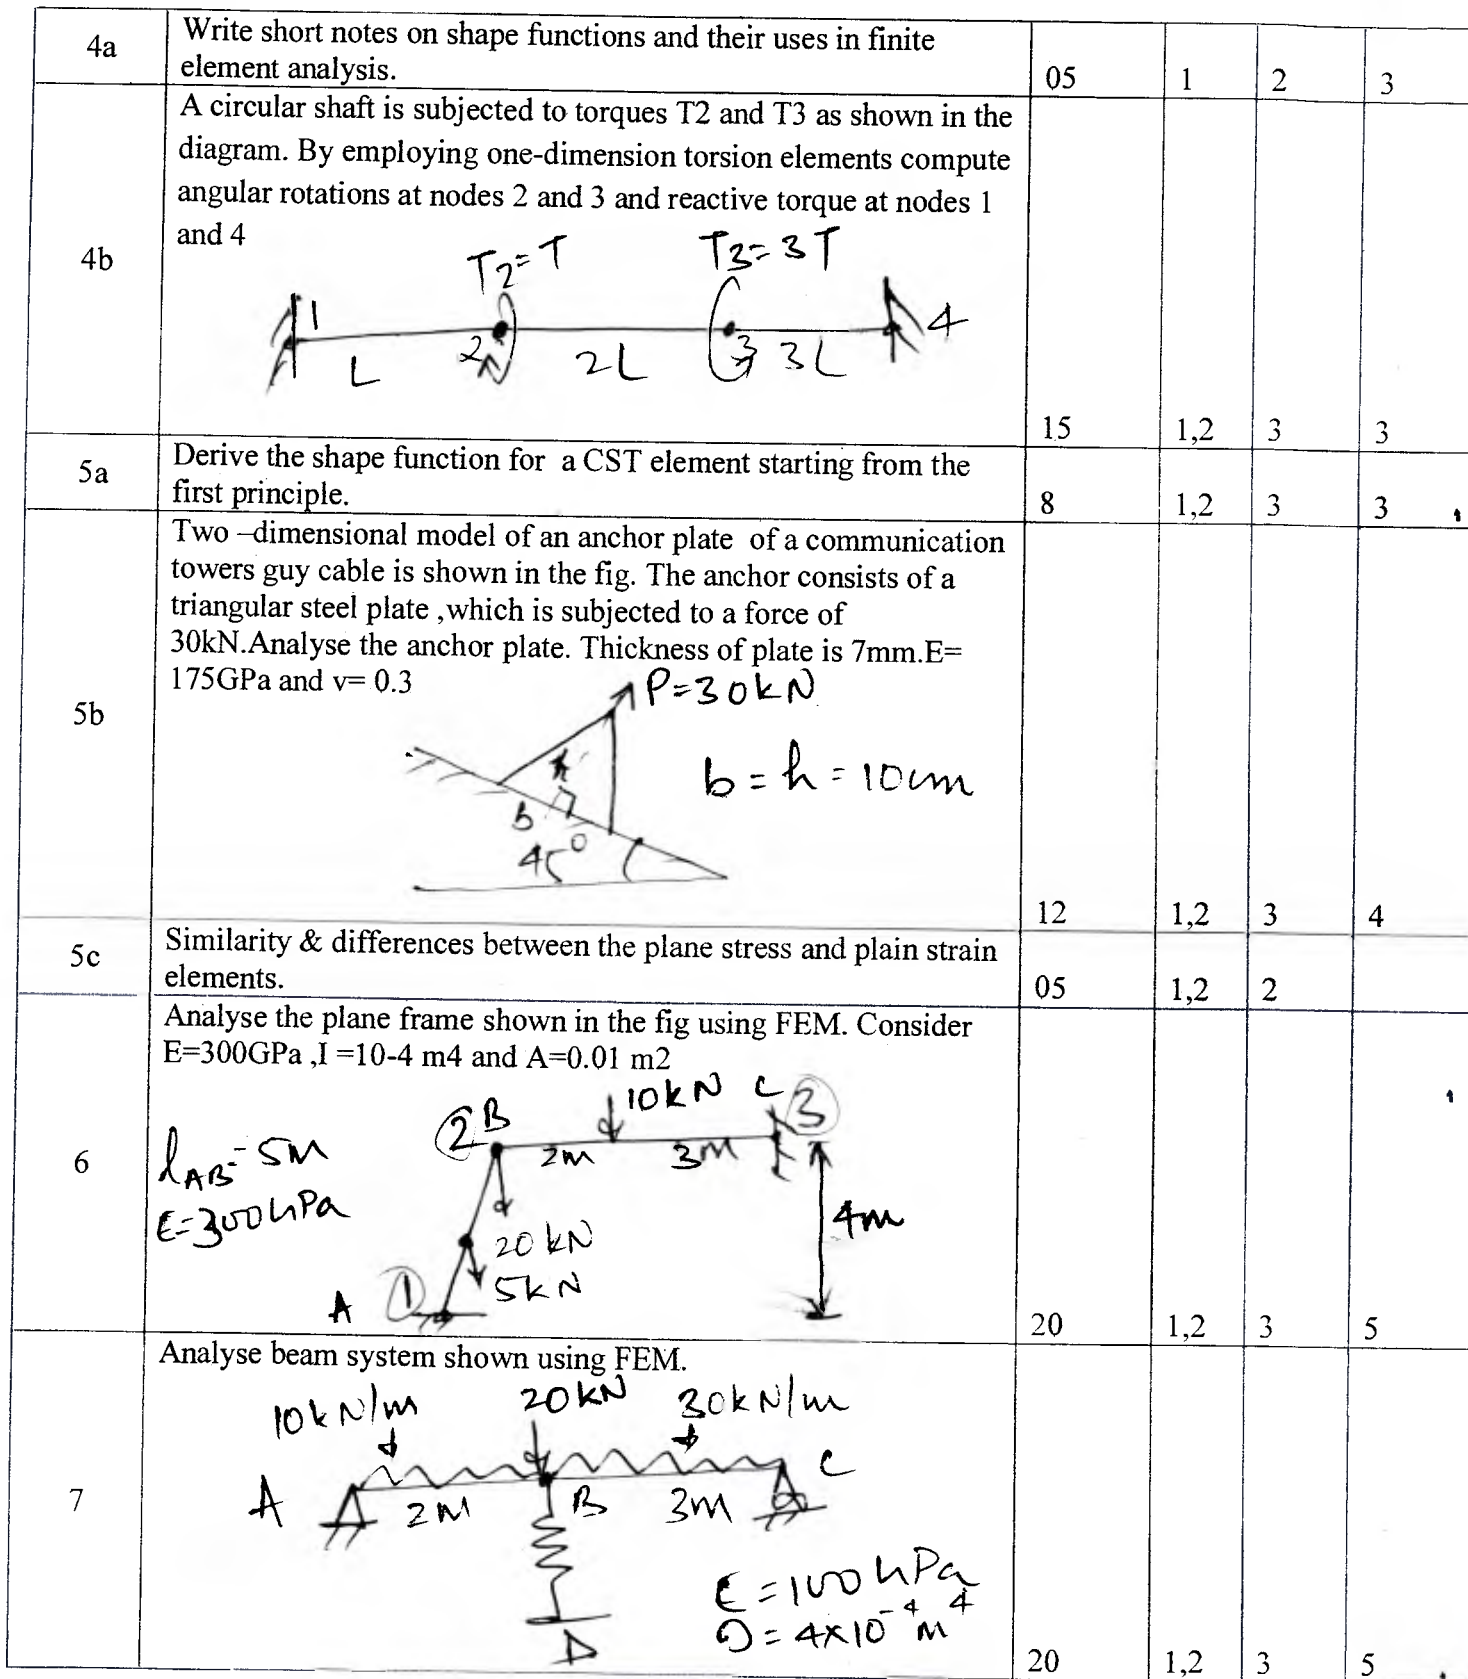 4a
Write short notes on shape functions and their uses in finite
element analysis.
05 1 2 3
4b
A circular shaft is subjected to torques T2 and T3 as shown in the
diagram. By employing one-dimension torsion elements compute
angular rotations at nodes 2 and 3 and reactive torque at nodes 1
and 4
T2=T T3=3T
1 2 3 4
L 2L 3L
15 1,2 3 3
5a
Derive the shape function for a CST element starting from the
first principle.
8 1,2 3 3
5b
Two –dimensional model of an anchor plate of a communication
towers guy cable is shown in the fig. The anchor consists of a
triangular steel plate ,which is subjected to a force of
30kN.Analyse the anchor plate. Thickness of plate is 7mm.E=
175GPa and v= 0.3
P=30kN
h
b = h = 10cm
b
45°
12 1,2 3 4
5c
Similarity & differences between the plane stress and plain strain
elements.
05 1,2 2
6
Analyse the plane frame shown in the fig using FEM. Consider
E=300GPa ,I =10-4 m4 and A=0.01 m2
10kN C 3
2 B
2m 3m
lAB=5m
E=300GPa
4m
20 kN
5kN
A 1
20 1,2 3 5
7
Analyse beam system shown using FEM.
10kN/m 20kN 30kN/m
A 2m B 3m C
E=100GPa
I=4x10⁻⁴m⁴
D
20 1,2 3 5